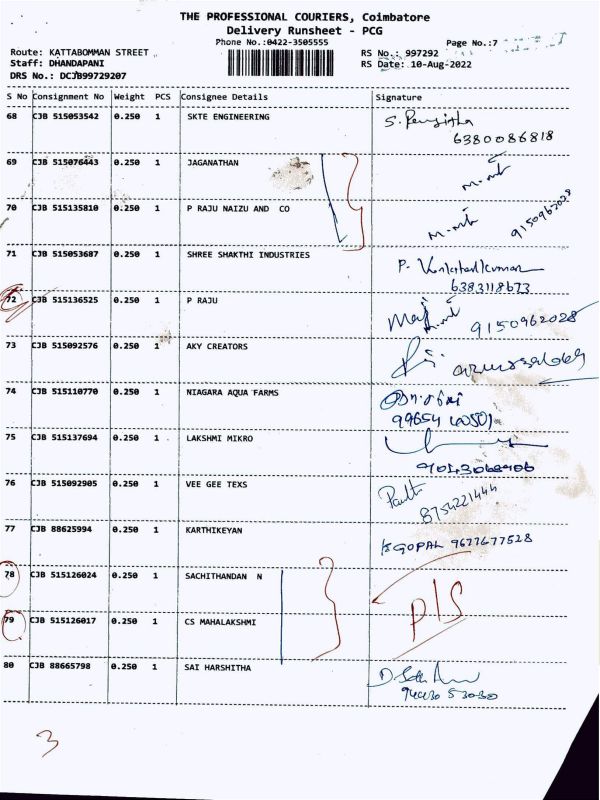 THE PROFESSIONAL COURIERS, Coimbatore
Delivery Runsheet - PCG
Phone No.:0422-3505555
Page No.:7
Route: KATTABOMMAN STREET
RS No.: 997292
Staff: DHANDAPANI
RS Date: 10-Aug-2022
DRS No.: DCJB99729207
S No Consignment No Weight PCS Consignee Details Signature
68 CJB 515053542 0.250 1 SKTE ENGINEERING
6380086818
69 CJB 515076443 0.250 1 JAGANATHAN
70 CJB 515135810 0.250 1 P RAJU NAIZU AND CO
9150962028
71 CJB 515053687 0.250 1 SHREE SHAKTHI INDUSTRIES
6383118673
72 CJB 515136525 0.250 1 P RAJU
9150962028
73 CJB 515092576 0.250 1 AKY CREATORS
74 CJB 515110770 0.250 1 NIAGARA AQUA FARMS
75 CJB 515137694 0.250 1 LAKSHMI MIKRO
76 CJB 515092905 0.250 1 VEE GEE TEXS
8754221444
77 CJB 88625994 0.250 1 KARTHIKEYAN
GOPAL 9677677528
78 CJB 515126024 0.250 1 SACHITHANDAN N
P/S
79 CJB 515126017 0.250 1 CS MAHALAKSHMI
80 CJB 88665798 0.250 1 SAI HARSHITHA
3